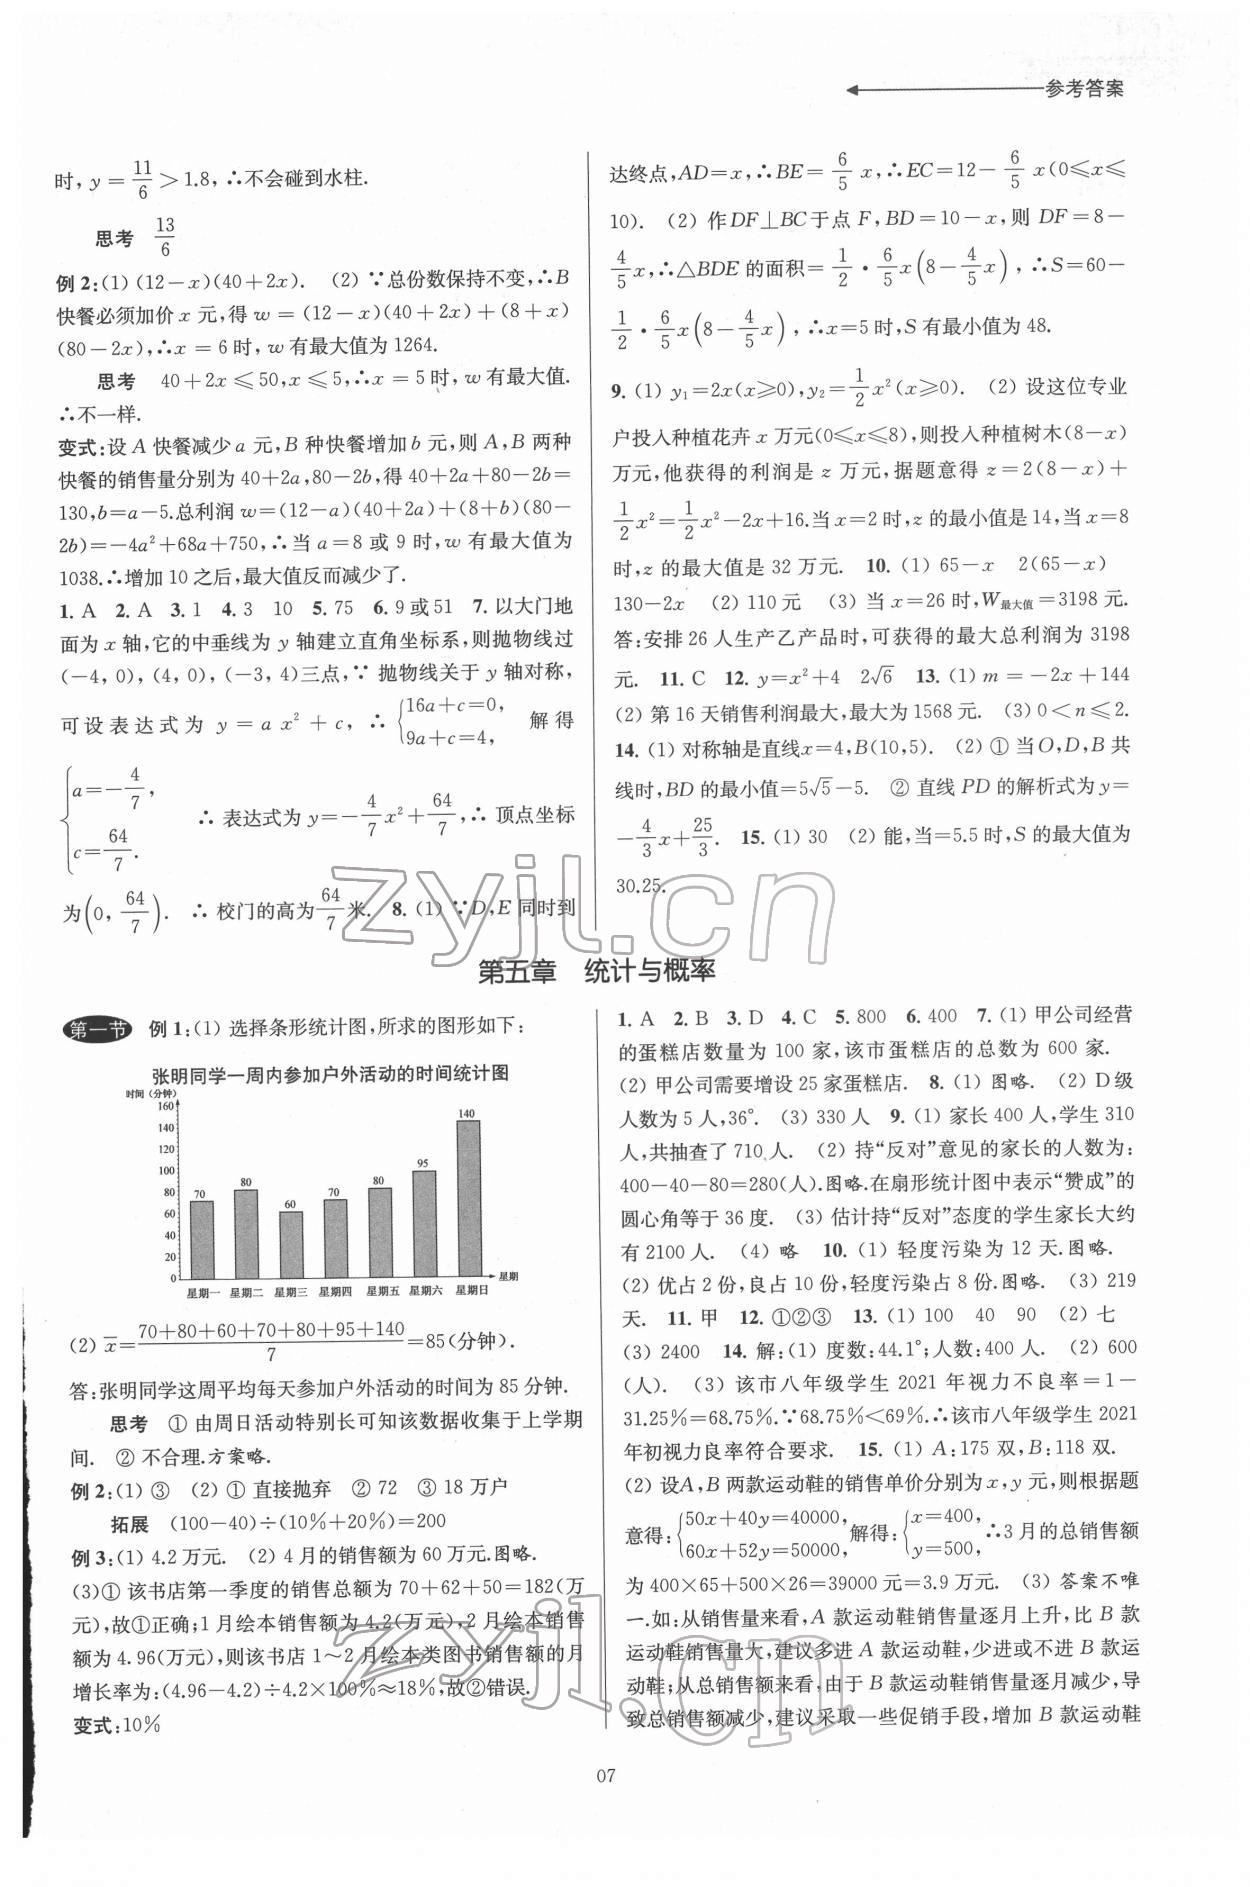 参考答案
时,y=11/6>1.8,∴不会碰到水柱.
思考 13/6
例2:(1) (12-x)(40+2x). (2) ∵总份数保持不变,∴B
快餐必须加价x元,得w=(12-x)(40+2x)+(8+x)
(80-2x),∴x=6时,w有最大值为1264.
思考 40+2x≤50,x≤5,∴x=5时,w有最大值.
∴不一样.
变式:设A快餐减少a元,B种快餐增加b元,则A,B两种
快餐的销售量分别为40+2a,80-2b,得40+2a+80-2b=
130,b=a-5.总利润w=(12-a)(40+2a)+(8+b)(80-
2b)=-4a²+68a+750,∴当a=8或9时,w有最大值为
1038.∴增加10之后,最大值反而减少了.
1. A 2. A 3. 1 4. 3 10 5. 75 6. 9或51 7. 以大门地
面为x轴,它的中垂线为y轴建立直角坐标系,则抛物线过
(-4,0),(4,0),(-3,4)三点,∵抛物线关于y轴对称,
可设表达式为y=ax²+c,∴{16a+c=0, 9a+c=4, 解得
{a=-4/7, c=64/7. ∴表达式为y=-4/7x²+64/7,∴顶点坐标
为(0,64/7). ∴校门的高为64/7米. 8. (1) ∵D,E同时到
达终点,AD=x,∴BE=6/5x,∴EC=12-6/5x(0≤x≤
10). (2) 作DF⊥BC于点F,BD=10-x,则DF=8-
4/5x,∴△BDE的面积=1/2·6/5x(8-4/5x),∴S=60-
1/2·6/5x(8-4/5x),∴x=5时,S有最小值为48.
9. (1) y₁=2x(x≥0),y₂=1/2x²(x≥0). (2) 设这位专业
户投入种植花卉x万元(0≤x≤8),则投入种植树木(8-x)
万元,他获得的利润是z万元,据题意得z=2(8-x)+
1/2x²=1/2x²-2x+16.当x=2时,z的最小值是14,当x=8
时,z的最大值是32万元. 10. (1) 65-x 2(65-x)
130-2x (2) 110元 (3) 当x=26时,W最大值=3198元.
答:安排26人生产乙产品时,可获得的最大总利润为3198
元. 11. C 12. y=x²+4 2√6 13. (1) m=-2x+144
(2) 第16天销售利润最大,最大为1568元. (3) 0<n≤2.
14. (1) 对称轴是直线x=4,B(10,5). (2) ① 当O,D,B共
线时,BD的最小值=5√5-5. ② 直线PD的解析式为y=
-4/3x+25/3. 15. (1) 30 (2) 能,当=5.5时,S的最大值为
30.25.
第五章 统计与概率
第一节 例1:(1) 选择条形统计图,所求的图形如下:
张明同学一周内参加户外活动的时间统计图
时间(分钟)
160
140
120
100
80
60
40
20
0
70 80 60 70 80 95 140
星期一 星期二 星期三 星期四 星期五 星期六 星期日 星期
(2) x̄=(70+80+60+70+80+95+140)/7=85(分钟).
答:张明同学这周平均每天参加户外活动的时间为85分钟.
思考 ① 由周日活动特别长可知该数据收集于上学期
间. ② 不合理.方案略.
例2:(1) ③ (2) ① 直接抛弃 ② 72 ③ 18万户
拓展 (100-40)÷(10%+20%)=200
例3:(1) 4.2万元. (2) 4月的销售额为60万元.图略.
(3)① 该书店第一季度的销售总额为70+62+50=182(万
元),故①正确;1月绘本销售额为4.2(万元),2月绘本销售
额为4.96(万元),则该书店1~2月绘本类图书销售额的月
增长率为:(4.96-4.2)÷4.2×100%≈18%,故②错误.
变式:10%
1. A 2. B 3. D 4. C 5. 800 6. 400 7. (1) 甲公司经营
的蛋糕店数量为100家,该市蛋糕店的总数为600家.
(2) 甲公司需要增设25家蛋糕店. 8. (1) 图略. (2) D级
人数为5人,36°. (3) 330人 9. (1) 家长400人,学生310
人,共抽查了710人. (2) 持“反对”意见的家长的人数为:
400-40-80=280(人).图略.在扇形统计图中表示“赞成”的
圆心角等于36度. (3) 估计持“反对”态度的学生家长大约
有2100人. (4) 略 10. (1) 轻度污染为12天.图略.
(2) 优占2份,良占10份,轻度污染占8份.图略. (3) 219
天. 11. 甲 12. ①②③ 13. (1) 100 40 90 (2) 七
(3) 2400 14. 解:(1) 度数:44.1°;人数:400人. (2) 600
(人). (3) 该市八年级学生2021年视力不良率=1-
31.25%=68.75%.∵68.75%<69%.∴该市八年级学生2021
年初视力良率符合要求. 15. (1) A:175双,B:118双.
(2) 设A,B两款运动鞋的销售单价分别为x,y元,则根据题
意得:{50x+40y=40000, 60x+52y=50000, 解得:{x=400, y=500, ∴3月的总销售额
为400×65+500×26=39000元=3.9万元. (3) 答案不唯
一.如:从销售量来看,A款运动鞋销售量逐月上升,比B款
运动鞋销售量大,建议多进A款运动鞋,少进或不进B款运
动鞋;从总销售额来看,由于B款运动鞋销售量逐月减少,导
致总销售额减少,建议采取一些促销手段,增加B款运动鞋
07
zyjl.cn
zyjl.cn